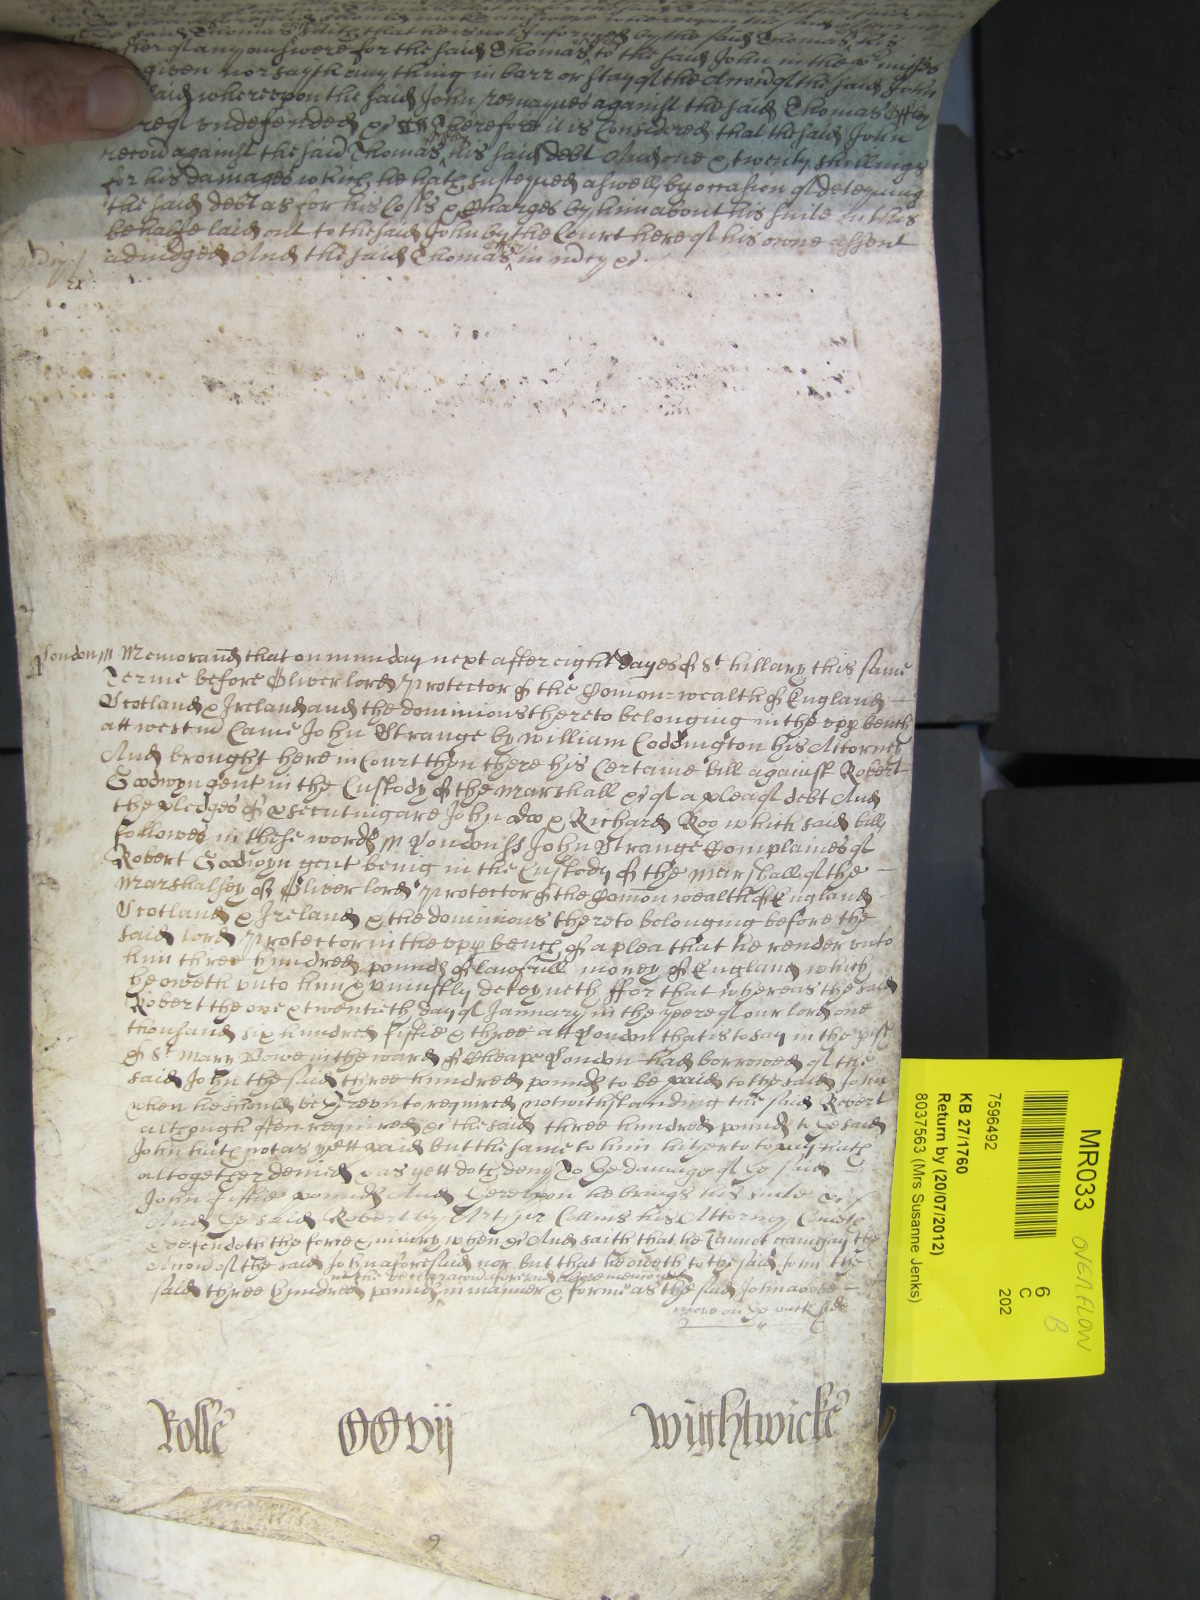 said Thomas saith that he is not informed by the said Thomas his
Master of any answere for the said Thomas to the said John in the p'misses
given nor sayth any thing in barr or stay of the Accon of the said John
said whereupon the said John remaynes against the said Thomas
undefended &c Therefore it is Considered that the said John
recov against the said Thomas his said debt And one & twenty shillings
for his damages which he hath susteyned aswell by occasion of deteyning
the said debt as for his Costs & Charges by him about his suite in this
behalfe laid out to the said John by the Court here of his owne assent
adiudged And the said Thomas in mcy &c
London ss Memorand that on munday next after eight dayes of St hillary this same
Terme before Oliver lord Protector of the Comon=wealth of England
Scotland & Ireland and the dominions thereto belonging in the upp bench
att westm Came John Strange by william Coddington his Attorney
And brought here in Court then there his Certaine bill against Robert
Goodwyn gent in the Custody of the Marshall &c of a plea of debt And
the pledges of psecuting are John Doo & Richard Roo which said bill
followes in these words ss London ss John Strange Complaines of
Robert Goodwyn gent being in the Custody of the Marshall of the
Marshalsey of Oliver lord Protector of the Comon wealth of England
Scotland & Ireland & the dominions thereto belonging before the
said lord Protector in the upp bench of a plea that he render unto
him three hundred pounds of lawfull money of England which
he oweth unto him & uniustly deteyneth ffor that whereas the said
Robert the one & twentieth day of January in the yeere of our lord one
thousand six hundred fiftie & three att London that is to say in the pish
of St Mary Bowe in the ward of Cheape London had borrowed of the
said John the said three hundred pounds to be paid to the said John
when he should be thereunto required notwithstanding the said Robert
although often required &c the said three hundred pounds to the said
John hath not as yett paid but the same to him hitherto to pay hath
altogether denied & as yett doth deny To the damage of the said
John fiftie pounds And thereupon he brings his suite &c
And the said Robert by Arthur Collins his Attorney Cometh
& defendeth the force & iniury when &c And saith that he Cannot gainsay the
Accon of the said John aforesaid nor but that he oweth to the said John the
in the declaracon aforesaid above menconed
said three hundred pounds in manner & forme as the said John above
more on the back side
Rolle CCvij Wightwicke
9
MR033
OVERFLOW
B
6
C
202
7596492
KB 27/1760
Return by (20/07/2012)
8037563 (Mrs Susanne Jenks)